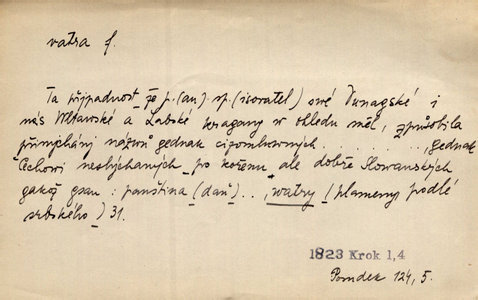 vatra f.
Ta případnosť že p. (an) sp. (isovatel) své Dunagské i
nás Wltawské a Labské kragany w ohledu měl, způsobila
přimíchání názwů gednak cizombowných. . . . . . . . . , gednak
Čechowi neobýchaných po kořenu ale dobře Slowanských
gakož gsau : panština (daň) . . , watry (plameny podlé
srbského) 31.
1823 Krok 1,4
124, 5.